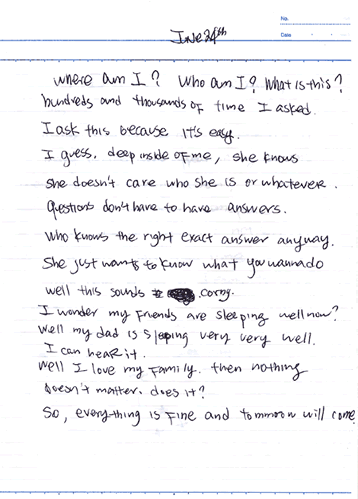 No.
Date
June 24th
where am I? Who am I? What is this?
hundreds and thousands of time I asked.
I ask this because it's easy.
I guess, deep inside of me, she knows
she doesn't care who she is or whatever.
questions don't have to have answers.
who knows the right exact answer anyway.
She just wants to know what you wanna do
well this sounds corny.
I wonder my friends are sleeping well now?
well my dad is sleeping very very well.
I can hear it.
well I love my family. then nothing
doesn't matter. does it?
So, everything is fine and tommorow will come.